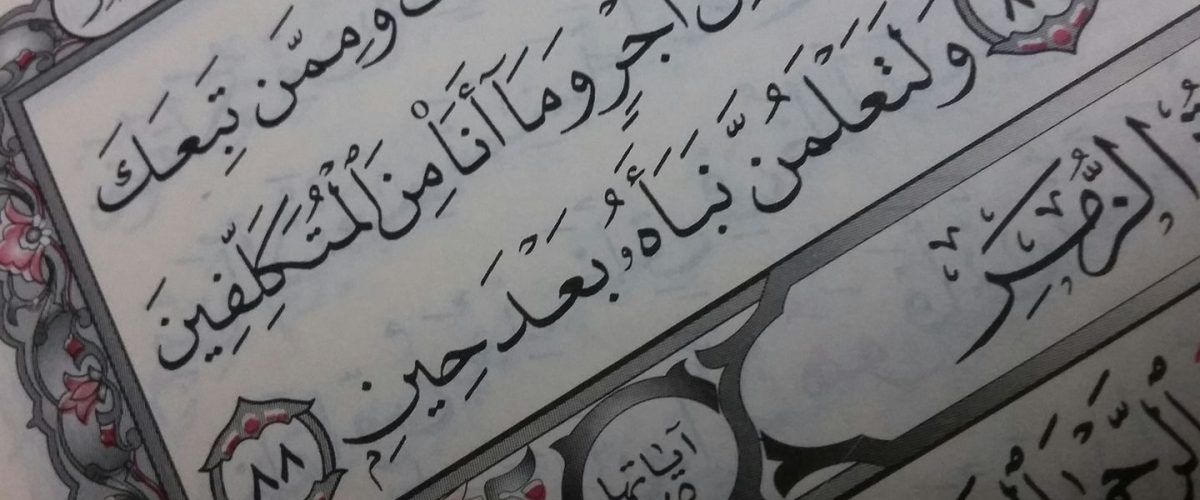 وَمِمَّن تَبِعَكَ
أَجْرٍ وَمَا أَنَا۠ مِنَ ٱلْمُتَكَلِّفِينَ
وَلَتَعْلَمُنَّ نَبَأَهُۥ بَعْدَ حِينٍۭ ٨٨
الزُّمَرِ
آيَاتُهَا